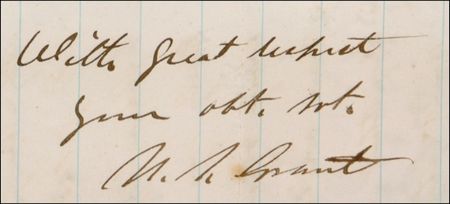 With great respect
your obt. svt.
U. S. Grant